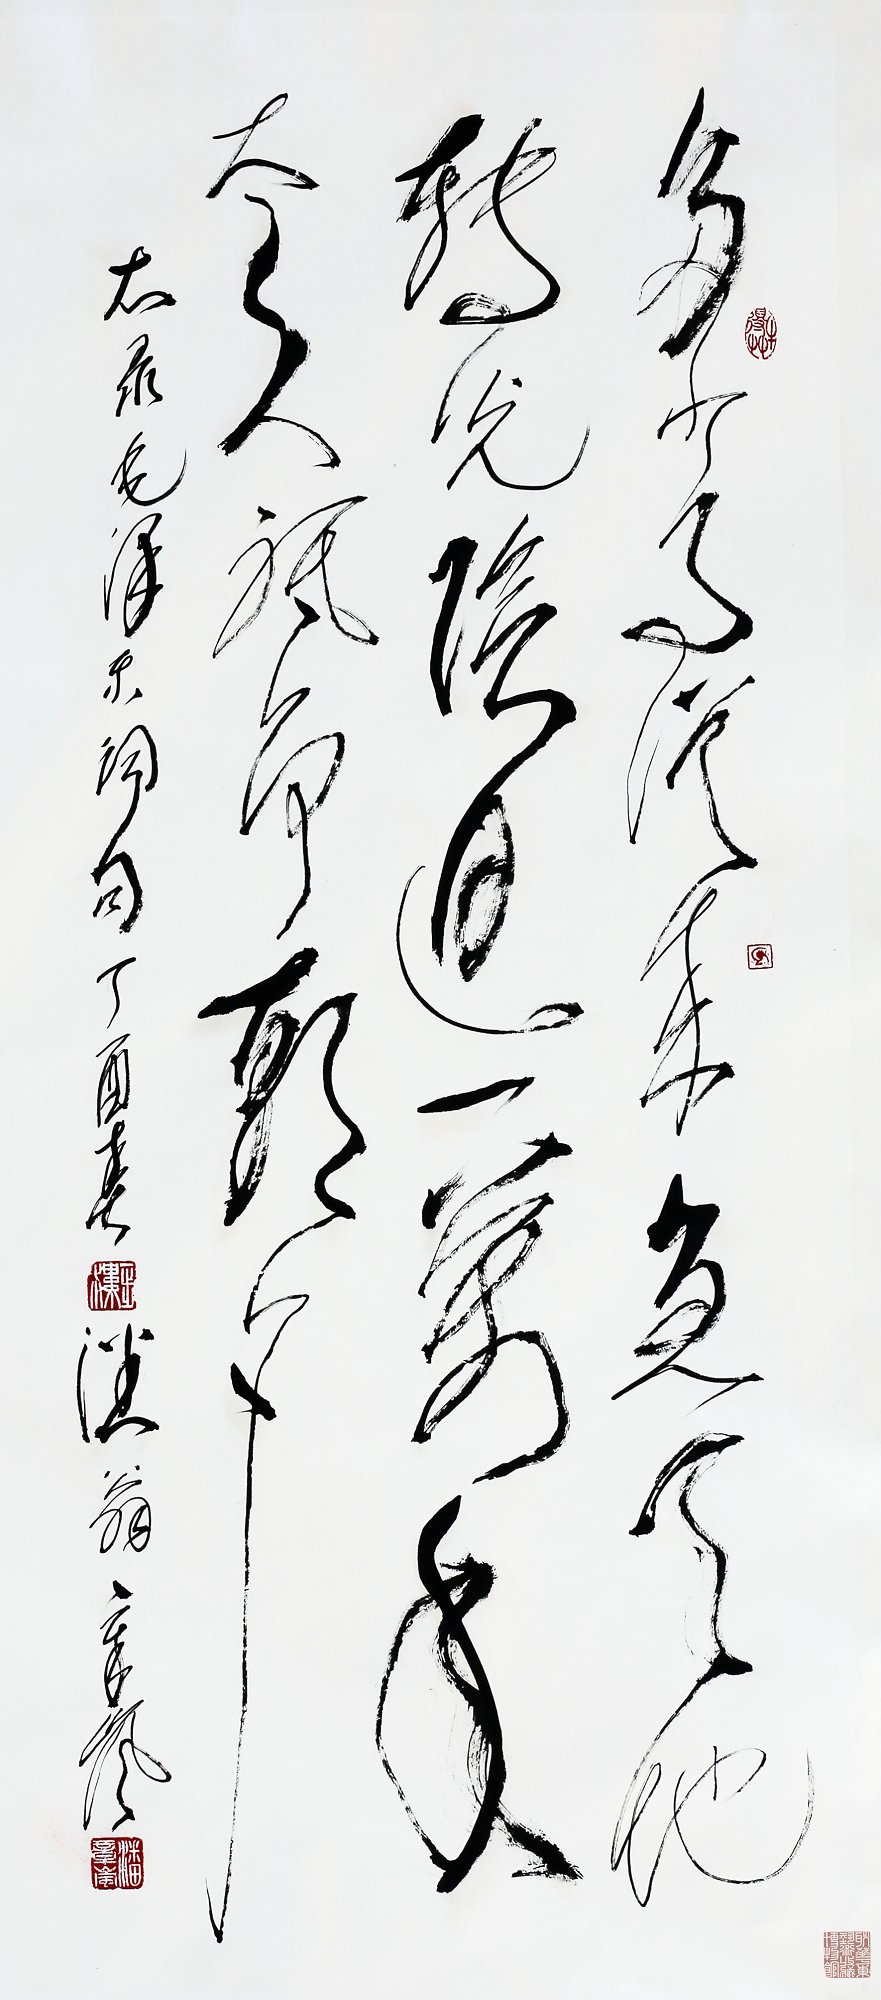 多少事從来急天地
轉光陰迫一萬年
太久祇争朝夕
右录毛泽东词句丁酉春 翁